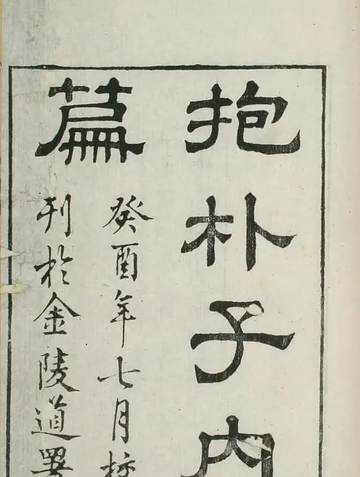 抱朴子内
篇
癸酉年七月校
刊於金陵道署